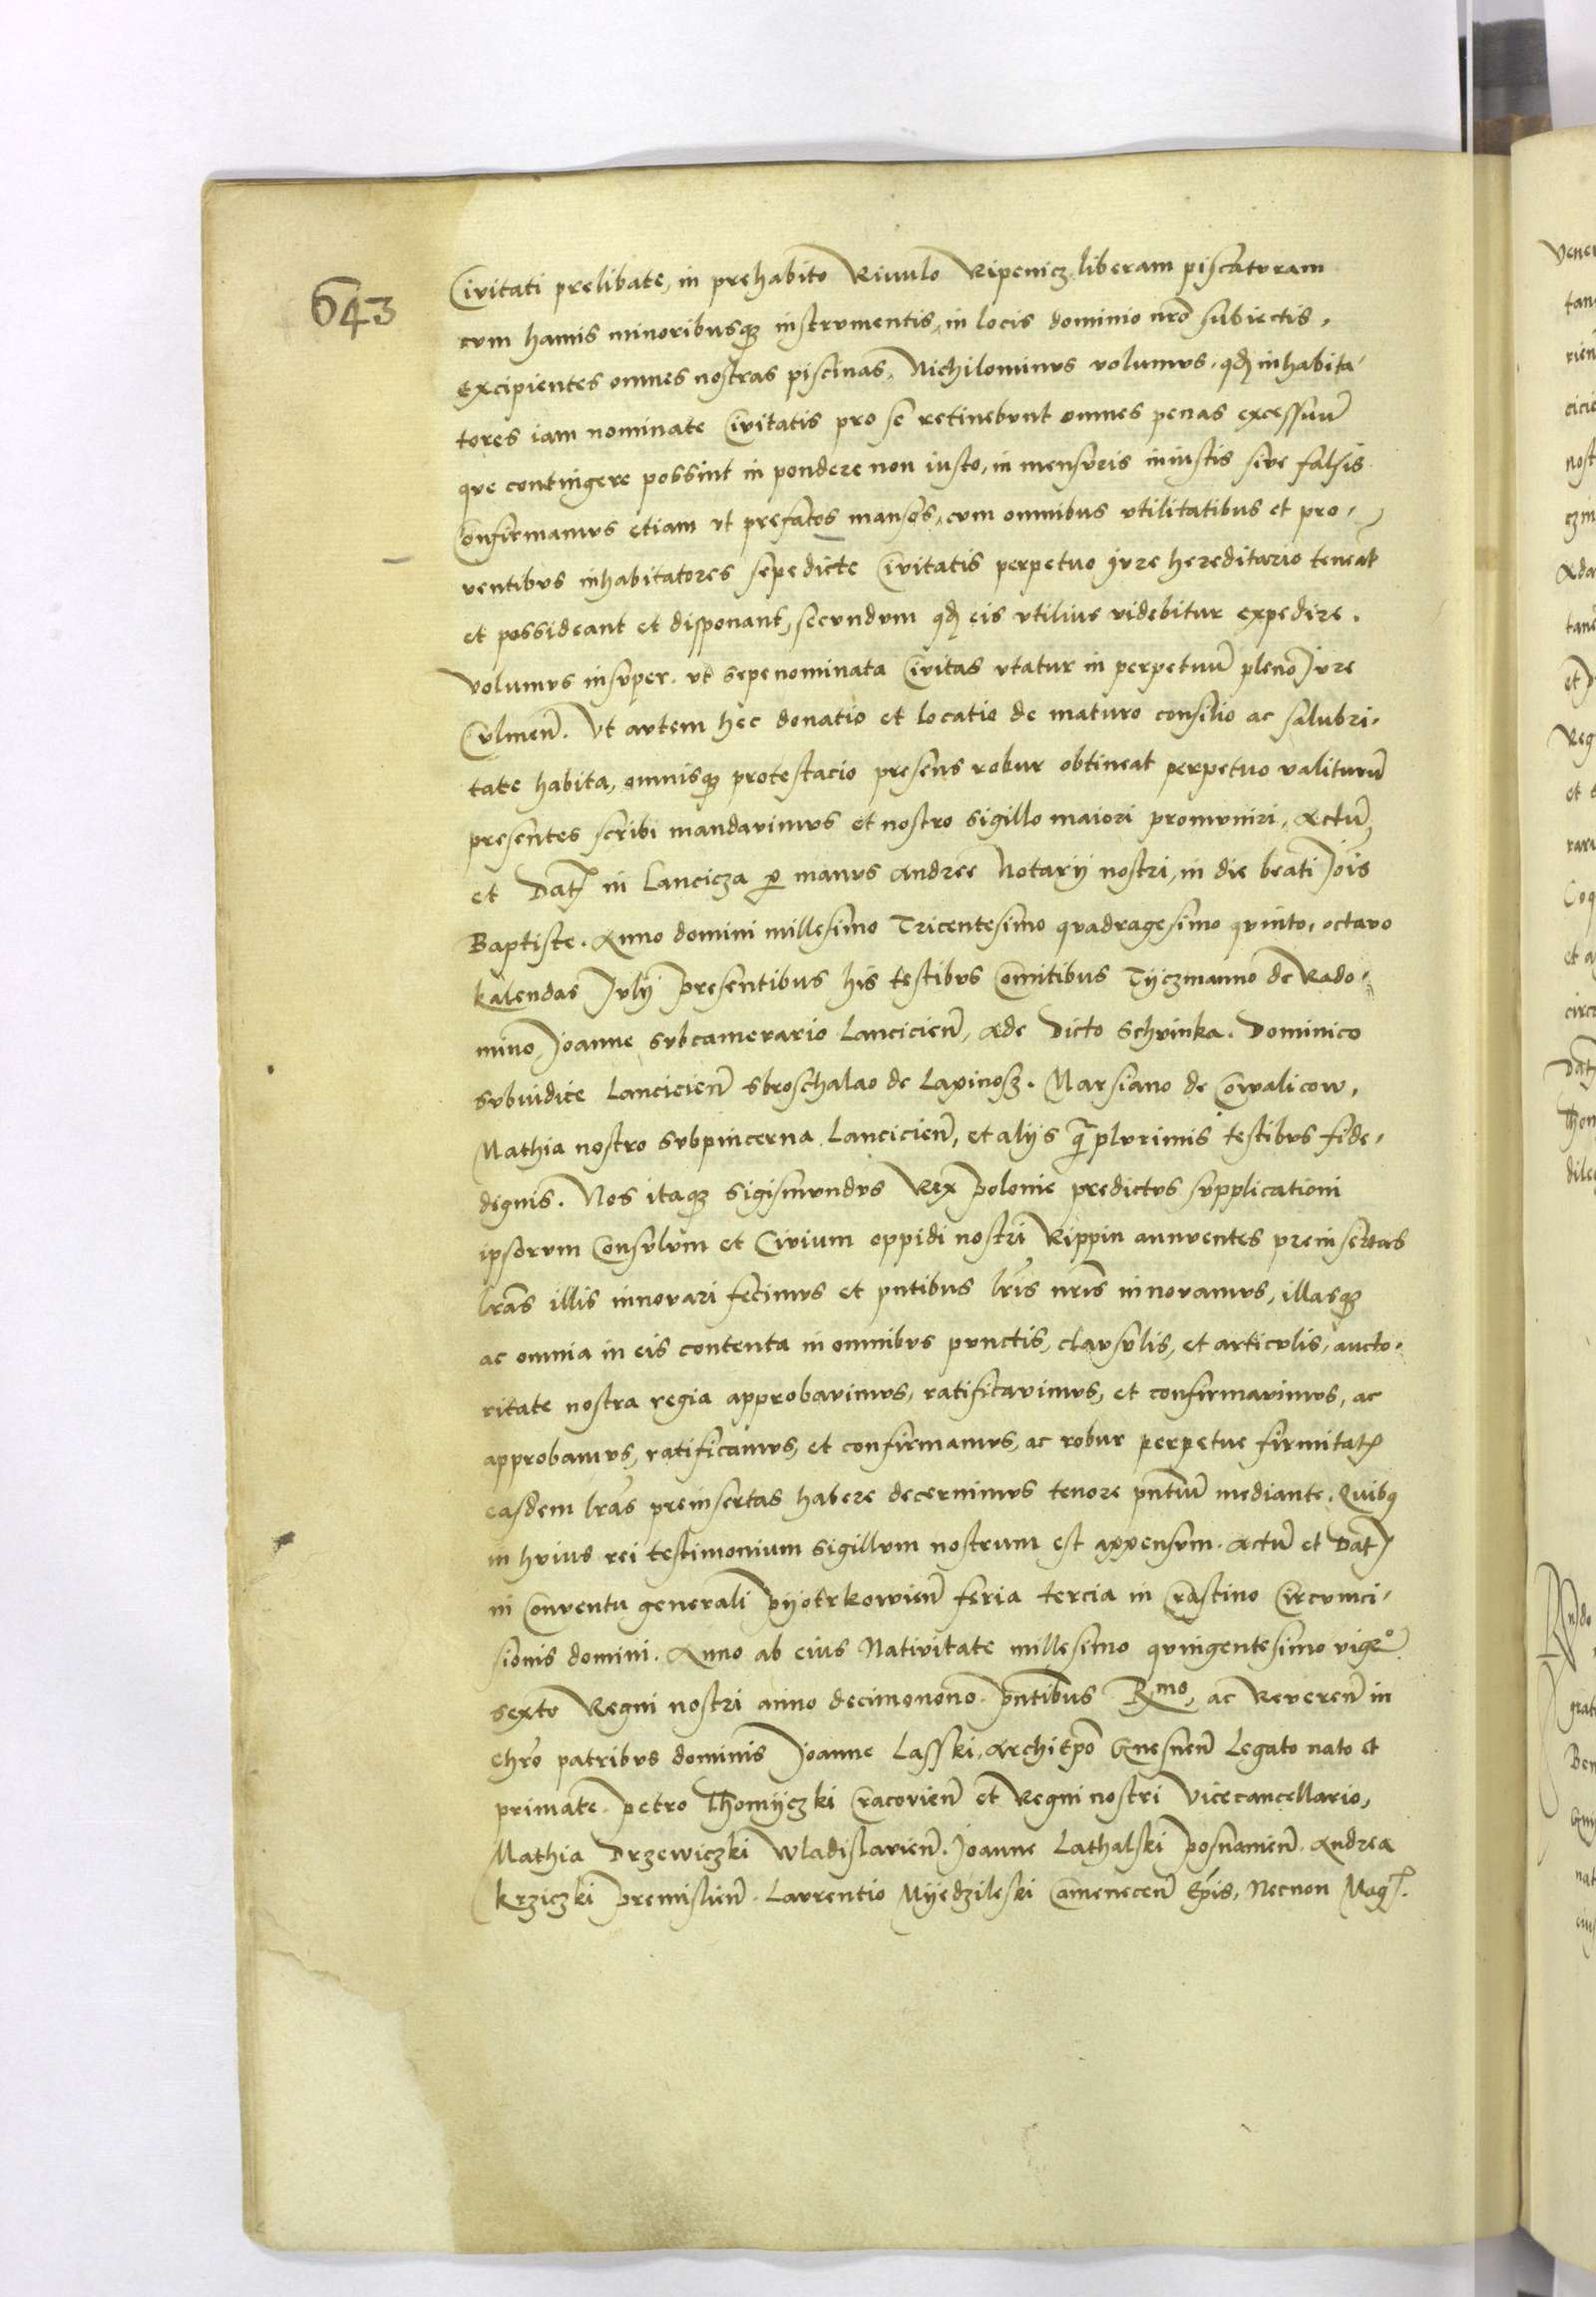 643
Civitati prelibate, in prehabito Rivulo Ripenicz liberam piscaturam
cum hamis minoribusq3 instrumentis, in locis dominio nr̃o subiectis,
Excipientes omnes nostras piscinas, Nichilominus volumus, qđ inhabita-
tores iam nominate Civitatis pro se retinebunt omnes penas excessuũ
que contingere possint in pondere non iusto, in mensuris iniustis sive falsis
Confirmamus etiam ut prefatos mansos, cum omnibus utilitatibus et pro-
ventibus inhabitatores sepedicte Civitatis perpetuo jure hereditario teneãt
et possideant et disponant, secundum qđ eis utilius videbitur expedire.
Volumus insuper. ut sepenominata Civitas utatur in perpetuũ pleno Jure
Culmeñ. Ut autem hec donatio et locatio de maturo consilio ac salubri-
tate habita, omnisq3 protestacio presens robur obtineat perpetuo valiturũ
presentes scribi mandavimus et nostro sigillo maiori promuniri, Actũ
et Dat̃ in Lancicza p manus Andree Notarij nostri, in die beati Jõis
Baptiste. Anno domini millesimo Tricentesimo quadragesimo quinto, octavo
kalendas Julij presentibus his testibus Comitibus Tyczmanno de Rado-
mino, Joanne subcamerario Lancicieñ, Ade Dicto Schrinka. Dominico
subiudice Lancicieñ sbroschalao de Laxinosz. Marsiano de Cowalicow,
Mathia nostro subpincerna Lancicieñ, et alijs q̃ plurimis testibus fide-
dignis. Nos itaq3 Sigismundus Rex Polonie predictus supplicationi
ipsorum Consulum et Civium oppidi nostri Rippin annuentes preinsertas
lr̃as illis innovari fecimus et pñtibus lr̃is nr̃is innovamus, illasq3
ac omnia in eis contenta in omnibus punctis, clausulis, et articulis, aucto-
ritate nostra regia approbavimus, ratificavimus, et confirmavimus, ac
approbamus, ratificamus, et confirmamus, ac robur perpetue firmitat̃
easdem lr̃as preinsertas habere decernimus tenore pñtiũ mediante. Quibq
in huius rei testimonium sigillum nostrum est appensum. Actũ et Dat̃
in Conventu generali Pyotrkowieñ feria tercia in Crastino Circumci-
sionis domini. Anno ab eius Nativitate millesimo quingentesimo vigẽo
sexto Regni nostri anno decimonono. Pñtibus Rmo, ac Revereñ in
chro̅ patribus dominis Joanne Lasski, Archiepo̅ Gnesneñ Legato nato et
primate. Petro Thomyczki Cracovieñ et Regni nostri Vicecancellario,
Mathia Drzewiczki Wladislavieñ. Joanne Lathalski Posnanieñ. Andrea
Krziczki Premislieñ. Laurentio Myedzileski Cameneceñ Ep̃is, Necnon Mag̃